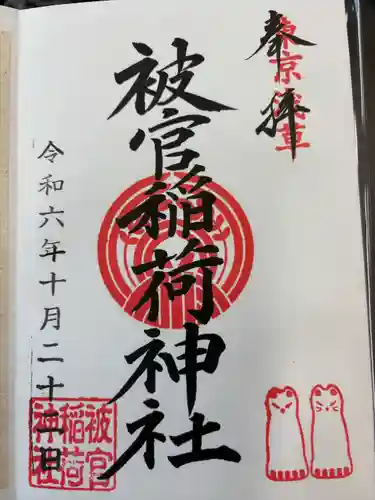 奉拝
東京浅草
被官稲荷神社
令和六年十月二十二日
被官稲荷神社